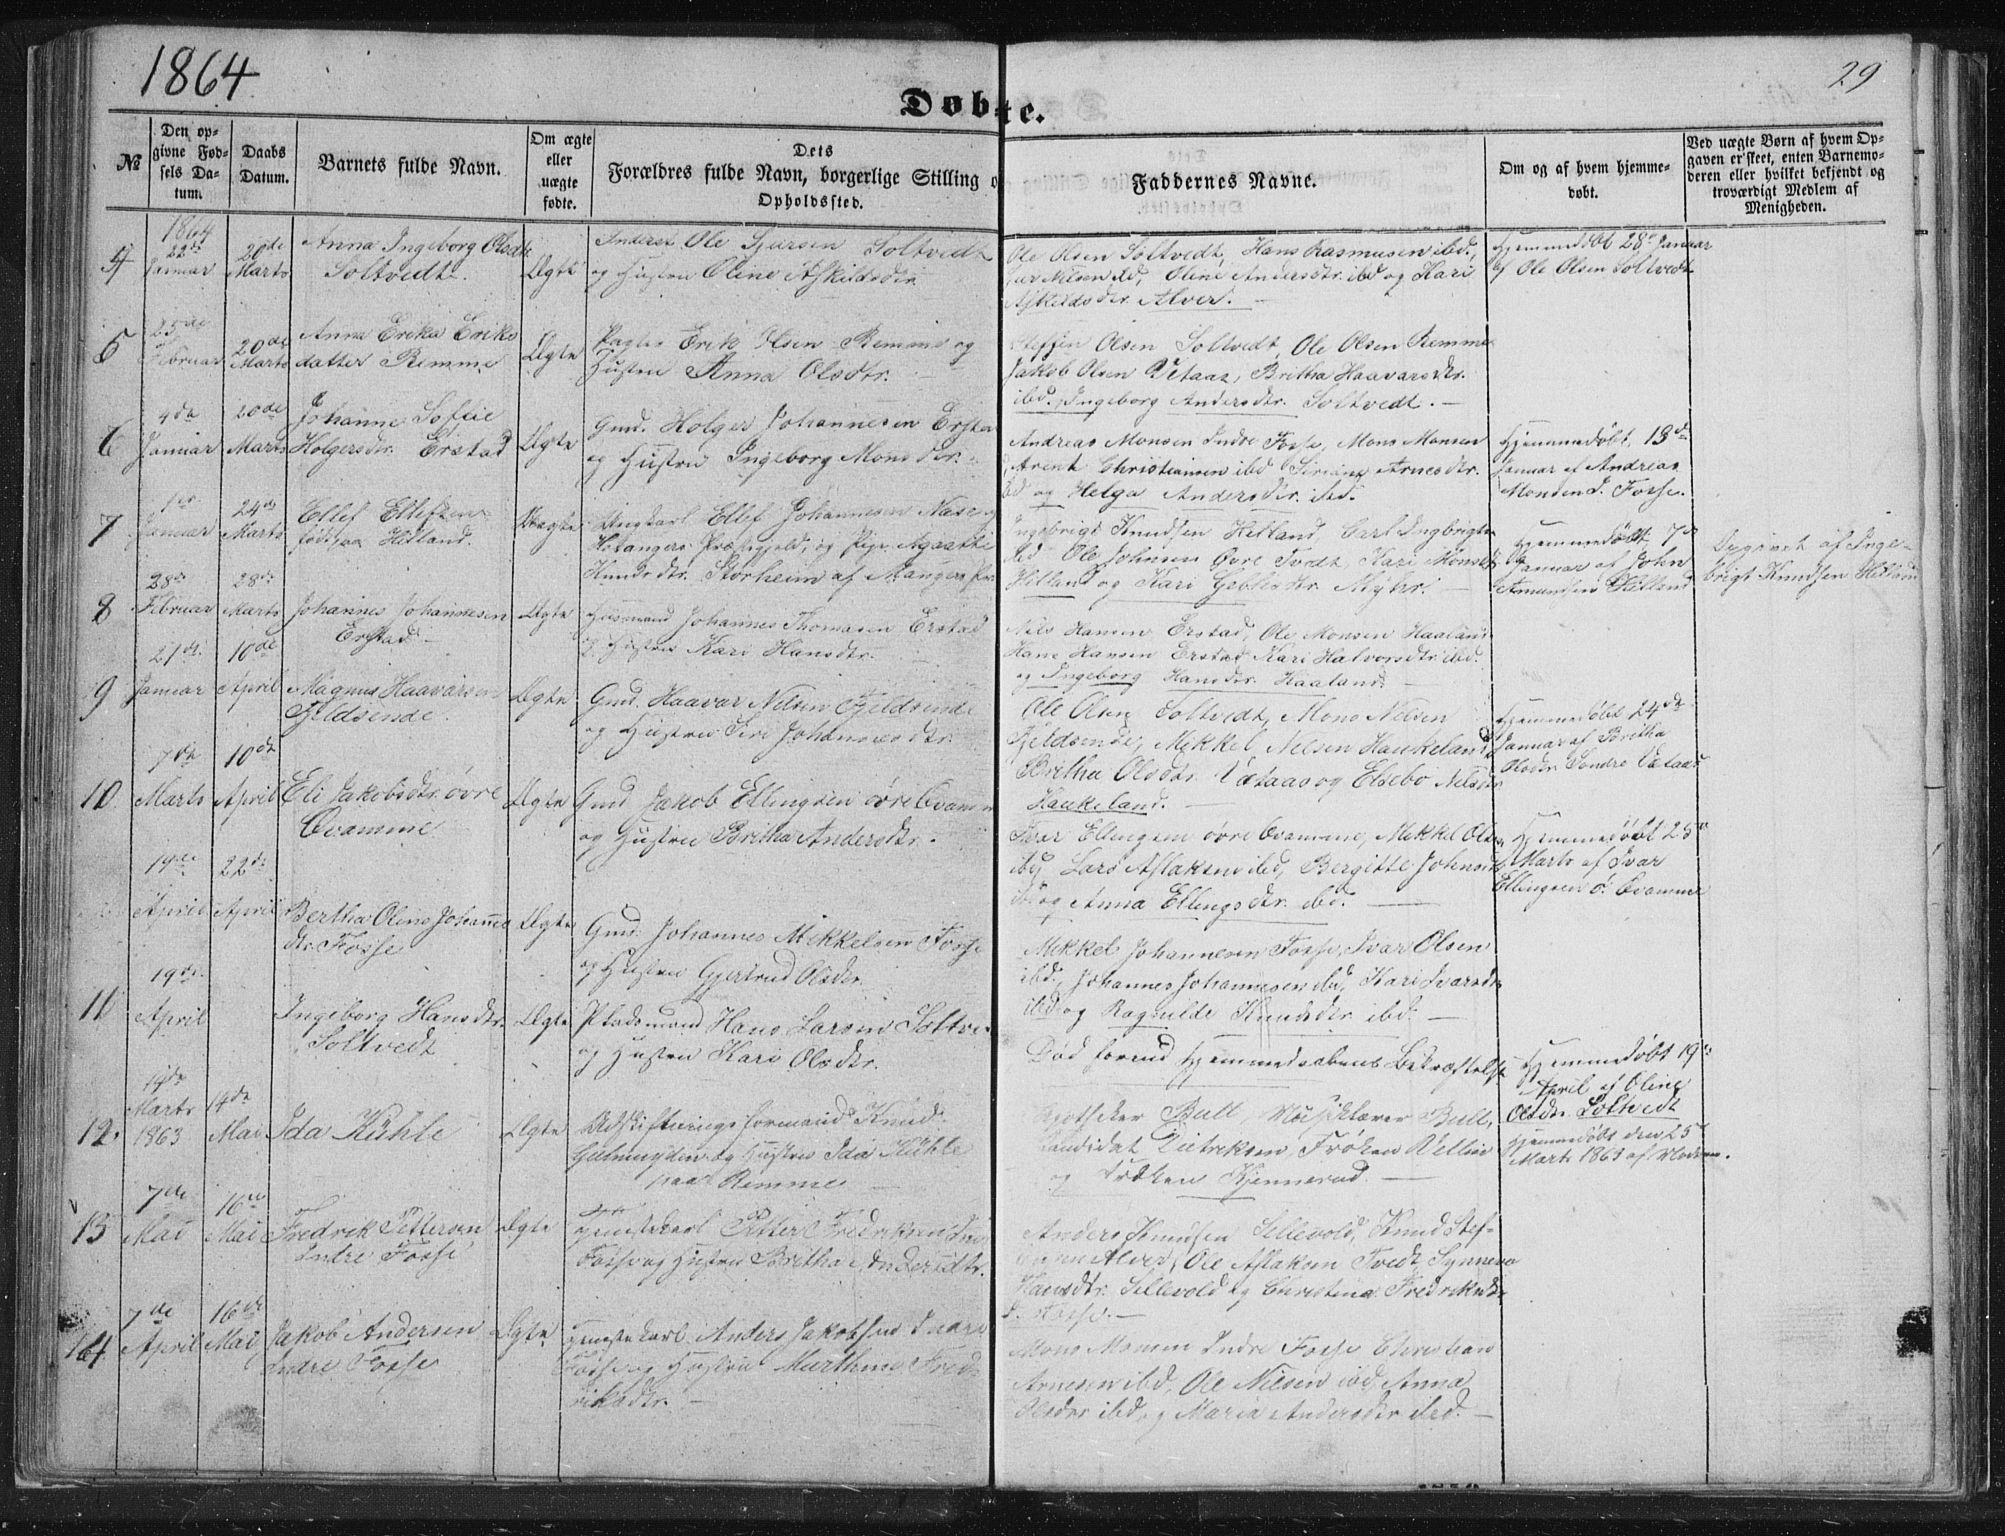 1864
29
Døbte.
№
Den op-
givne Fød-
sels Da-
tum.
Daabs
Datum.
Barnets fulde Navn.
Om ægte
eller
uægte
fødte.
Dets
Forældres fulde Navn, borgerlige Stilling o
Opholdssted.
Faddernes Navne.
Om og af hvem hjemme-
døbt.
Ved uægte Børn af hvem Op-
gaven er skeet, enten Barnemo-
deren eller hvilket bekjendt og
troværdigt Medlem af
Menigheden.
1864
22de
Januar
20de
Marts
Anna Ingeborg Olsdtr
Soltvedt.
Ægte
Ole Sjursen Soltvedt
og Hustru Oline Askildsdtr.
Ole Olsen Soltvedt, Hans Rasmusen ibd,
Nilsen ibd, Oline Andersdtr. ibd og Kari
Askeldsdtr. Alver. —
Hjemmedøbt 28de Januar
af Ole Olsen Soltvedt
5
25de
Februar
20de
Marts
Anna Erika Eriks
datter Remme
Ægte
Erik Olsen Remme og
Hustru Anna Olsdtr.
Steffen Olsen Soltvedt, Ole Olsen Remme
Jakob Olsen Vetaas, Britha Haavarsdtr.
ibd. Ingeborg Andersdtr. Soltvedt. —
6
4de
Januar
20de
Marts
Johanne Sofie
Holgersdtr. Erstad
Ægte
Gmd. Holger Johannesen Erstad
og Hustru Ingeborg Monsdtr.
Andreas Monsen Indre Fosse, Mons Monsen
Arent Christiansen ibd Arnesdtr.
ibd og Helga Andersdtr. ibd.
Hjemmedøbt, 13de
Januar af Andreas
Monsen I. Fosse.
7
1ste
Januar
24de
Marts
Ellef Ellefsen
født paa Hitland.
Uægte
Ungkarl Ellef Johannesen Næse
Præstegjeld, og Pige Agathe
Knudsdtr. Storheim af Manger
Ingebrigt Knudsen Hitland, Carl Ingbrigts
ibd Ole Johnsen Øvre Tvedt, Kari Monsd
Hitland og Kari Myhr. —
Hjemmedøbt 7de
Januar af John
Amundsen Hitland
Opgivet af Inge-
brigt Knudsen Hitland
8
28de
Februar
28de
Marts
Johannes Johannesen
Erstad —
Ægte
Huusmand Johannes Thomasen Erstad
og Hustru Kari Hansdtr.
Nils Hansen Erstad, Ole Monsen Haaland
Hans Hansen Erstad Kari Halvorsdtr. ibd.
og Ingeborg Hansdtr. Haaland. —
9
21de
Januar
10de
April
Magnus Haavarsen
Fjeldsende.
Ægte
Gmd. Haavar Nilsen Fjeldsende
og Hustru Siri Johannesdtr.
Ole Olsen Soltvedt, Mons Nilsen
Fjeldsende, Mikkel Nilsen Haukeland
Britha Olsdtr. Vætaas og Elsebe Nilsdtr
Haukeland. —
Hjemmedøbt 24de
Januar af Britha
Olsdtr. Søndre Vetaas
10
7de
Marts
10de
April
Eli Jakobsdtr. øvre
Qvamme
Ægte
Gmd Jakob Ellingsen øvre Qvamm
og Hustru Britha Andersdtr.
Ivar Ellingsen øvre Qvamme, Mikkel Olsen
ibd, Lars Aslaksen ibd, Bergitte Johnsdtr
ibd og Anna Ellingsdtr. ibd. —
Hjemmedøbt 25de
Marts af Ivar
Ellingsen ø. Qvamme
April
22de
April
Bertha Oline Johanne
dtr. Fosse
Ægte
Gmd. Johannes Mikkelsen Fosse
og Hustru Gjertrud Olsdtr.
Mikkel Johannesen Fosse, Ivar Olsen
ibd, Johannes Johannesen ibd, Kari Ivarsdtr
ibd og Ragnilde Knudsdtr ibd. —
11
19de
April
Ingeborg Hansdtr.
Soltvedt
Ægte
Pladsmand Hans Larsen Soltve-
og Hustru Kari Olsdtr.
Død forend Hjemmedaabens Bekræftelse
Hjemmedøbt 19de
April af Oline
Olsdtr. Soltvedt
12.
Marts
1863
Mai
Ida Kühle
Ægte
Knud
og Hustru Ida Kühle
paa Remme —
Apotheker Bull, Musiklærer Bull,
Candidat Dietrikson, Frøken
og Frøken Kjennerud —
Hjemmedøbt den 25de
Marts 1863 af Moderen.
13
7de
Mai
16de
Mai
Fredrik Pettersen
Indre Fosse
Ægte
Tjenestekarl Petter Fredriksen
Fosse og Hustru Britha Andersdtr.
Anders Knudsen Sellevold, Knud Stef-
Alver, Ole Aslaksen Tvedt, Synneva
Hansdtr. Sellevold og Christina Fredriksdtr
I. Fosse. —
14
7de
April
16de
Mai
Jakob Andersen
Indre Fosse
Ægte
Tjenestekarl Anders Jakobsen Indre
Fosse og Hustru Marthine Fred-
riksdtr. —
Mons Monsen Indre Fosse Christian
Arnesen ibd, Ole Nilsen ibd, Anna
Olsdtr ibd, og Maria Andersdtr ibd. —